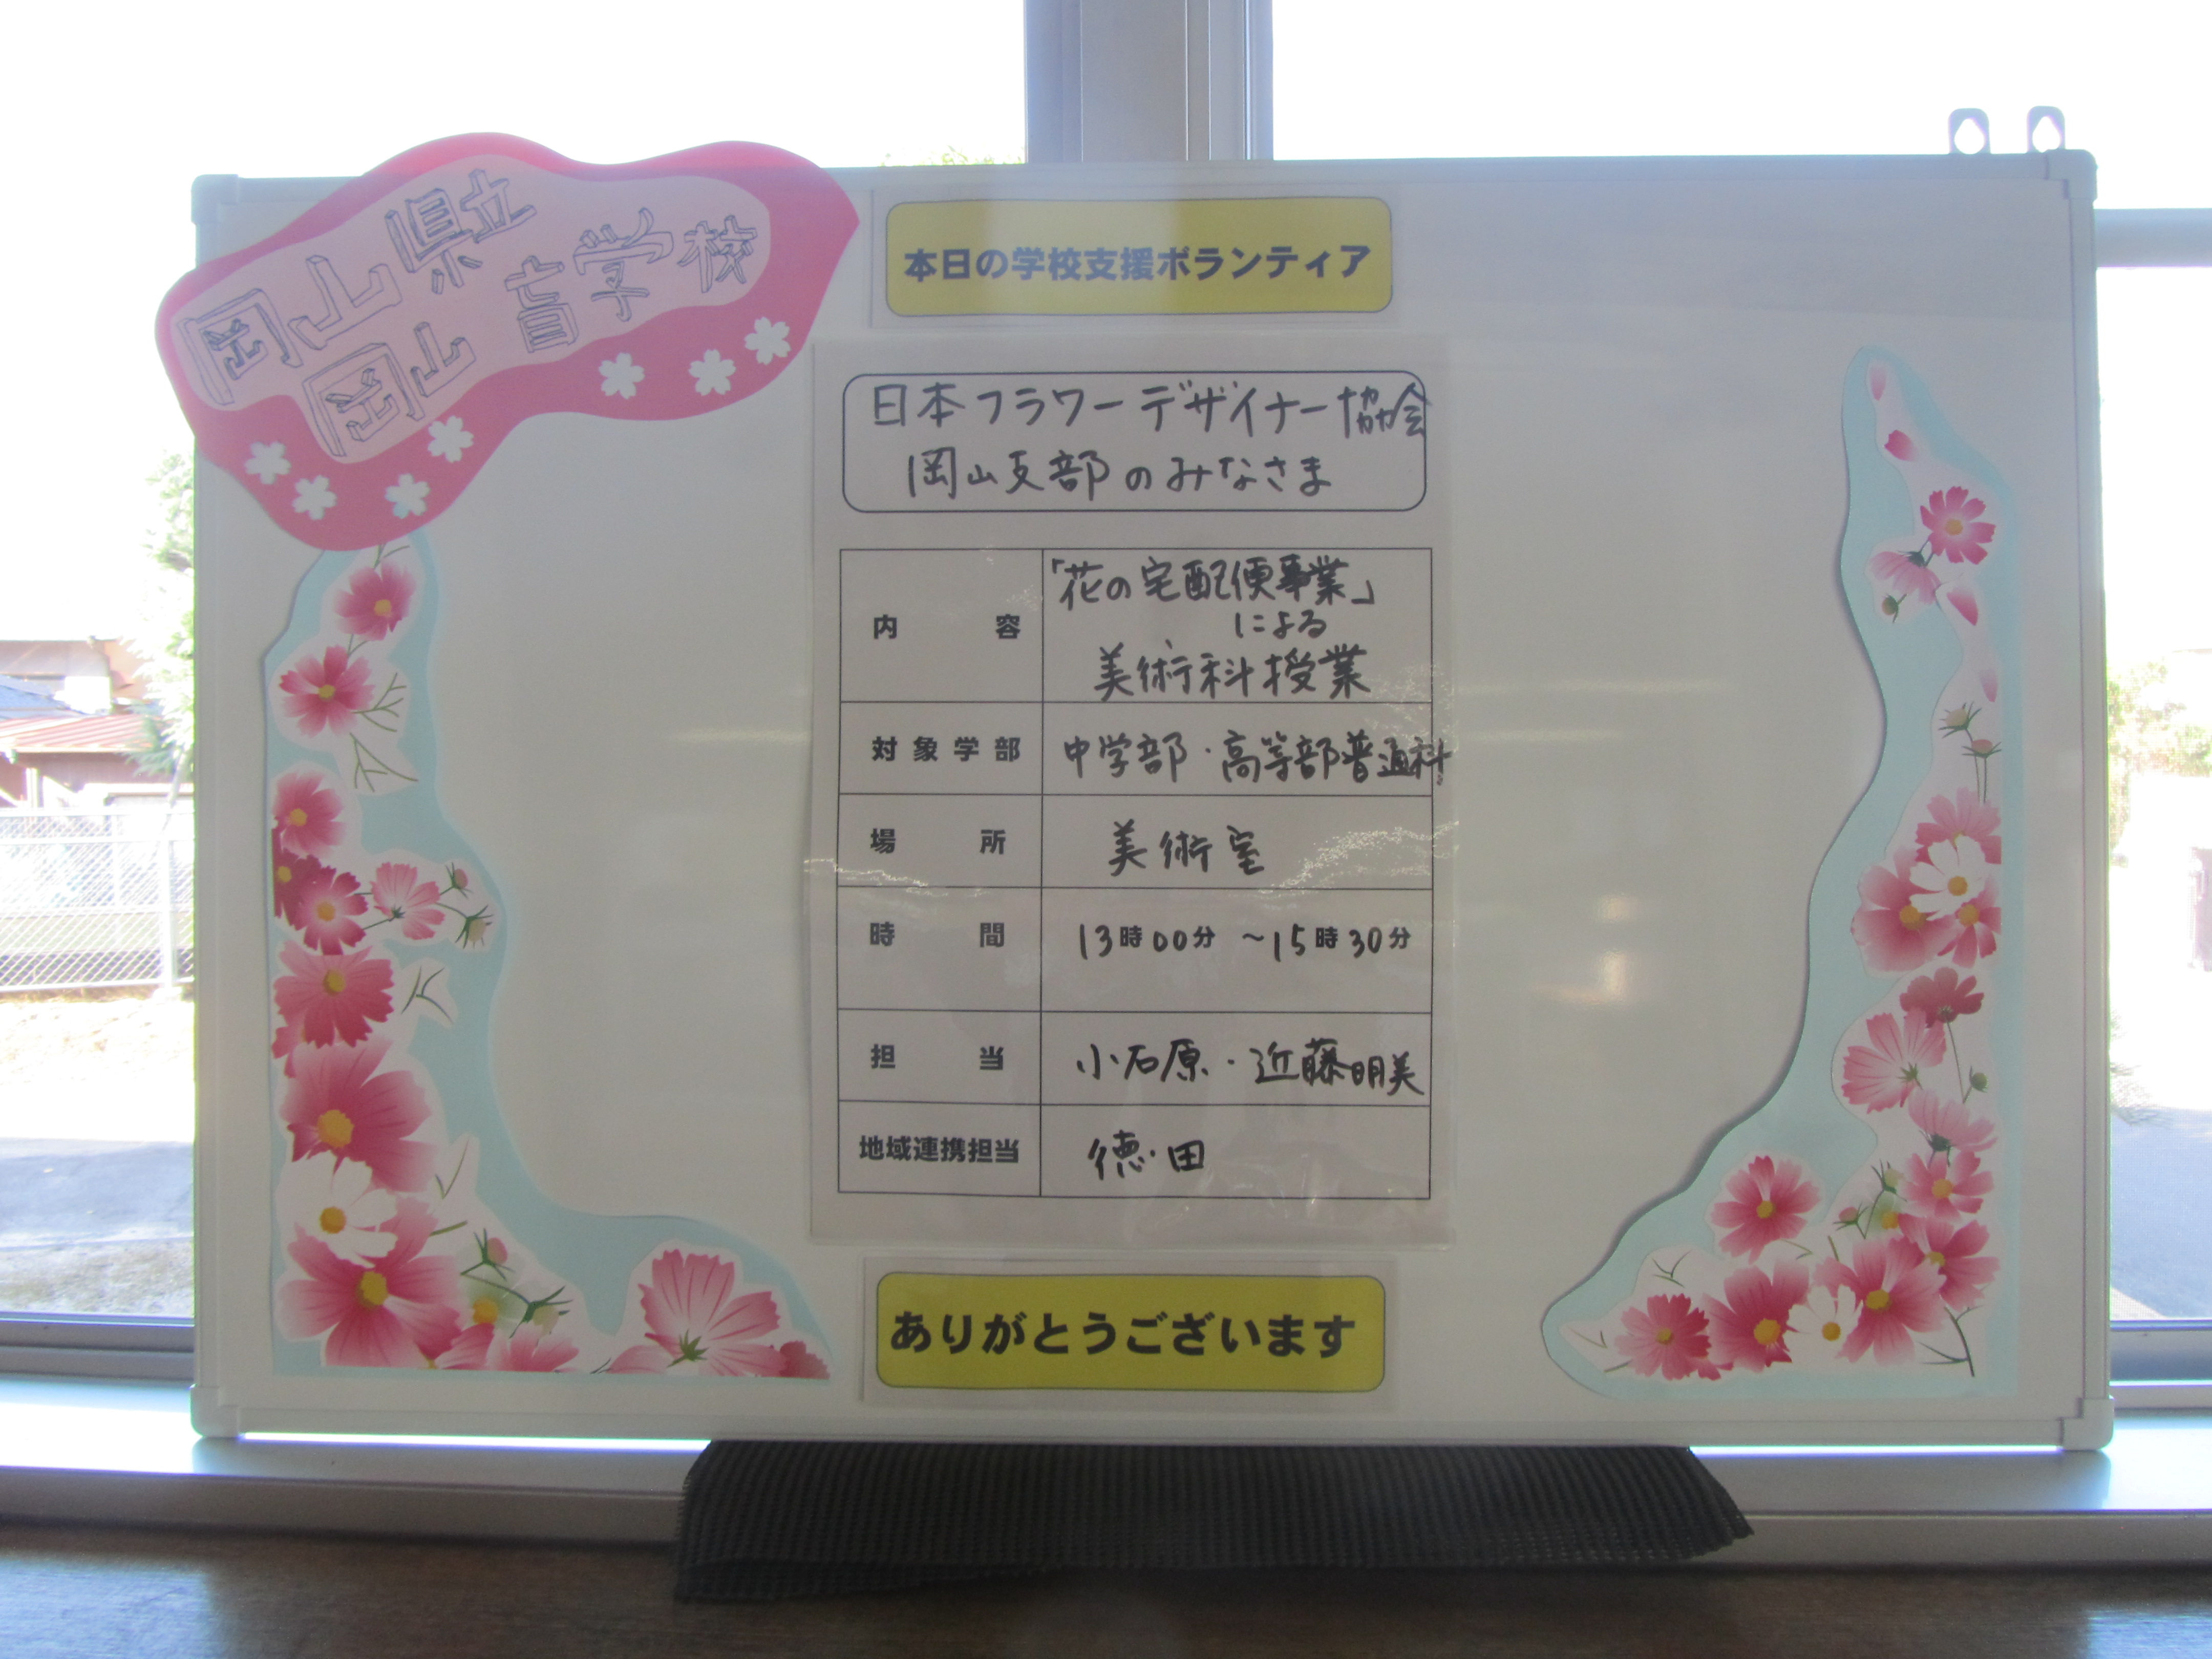 岡山県立
岡山盲学校
本日の学校支援ボランティア
日本フラワーデザイナー協会
岡山支部のみなさま
内容 「花の宅配便事業」
による
美術科授業
対象学部 中学部・高等部普通科
場所 美術室
時間 13時00分 ～15時30分
担当 小石原・近藤明美
地域連携担当 徳田
ありがとうございます